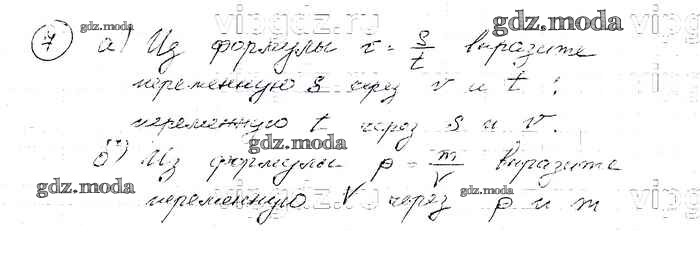 gdz.moda
vipgdz.ru
7 а) Из формулы v = s/t выразите
переменную s через v и t;
переменную t через s и v.
gdz.moda
б) Из формулы ρ = m/V выразите
gdz.moda
gdz.moda
переменную V через ρ и m
vipgdz.ru